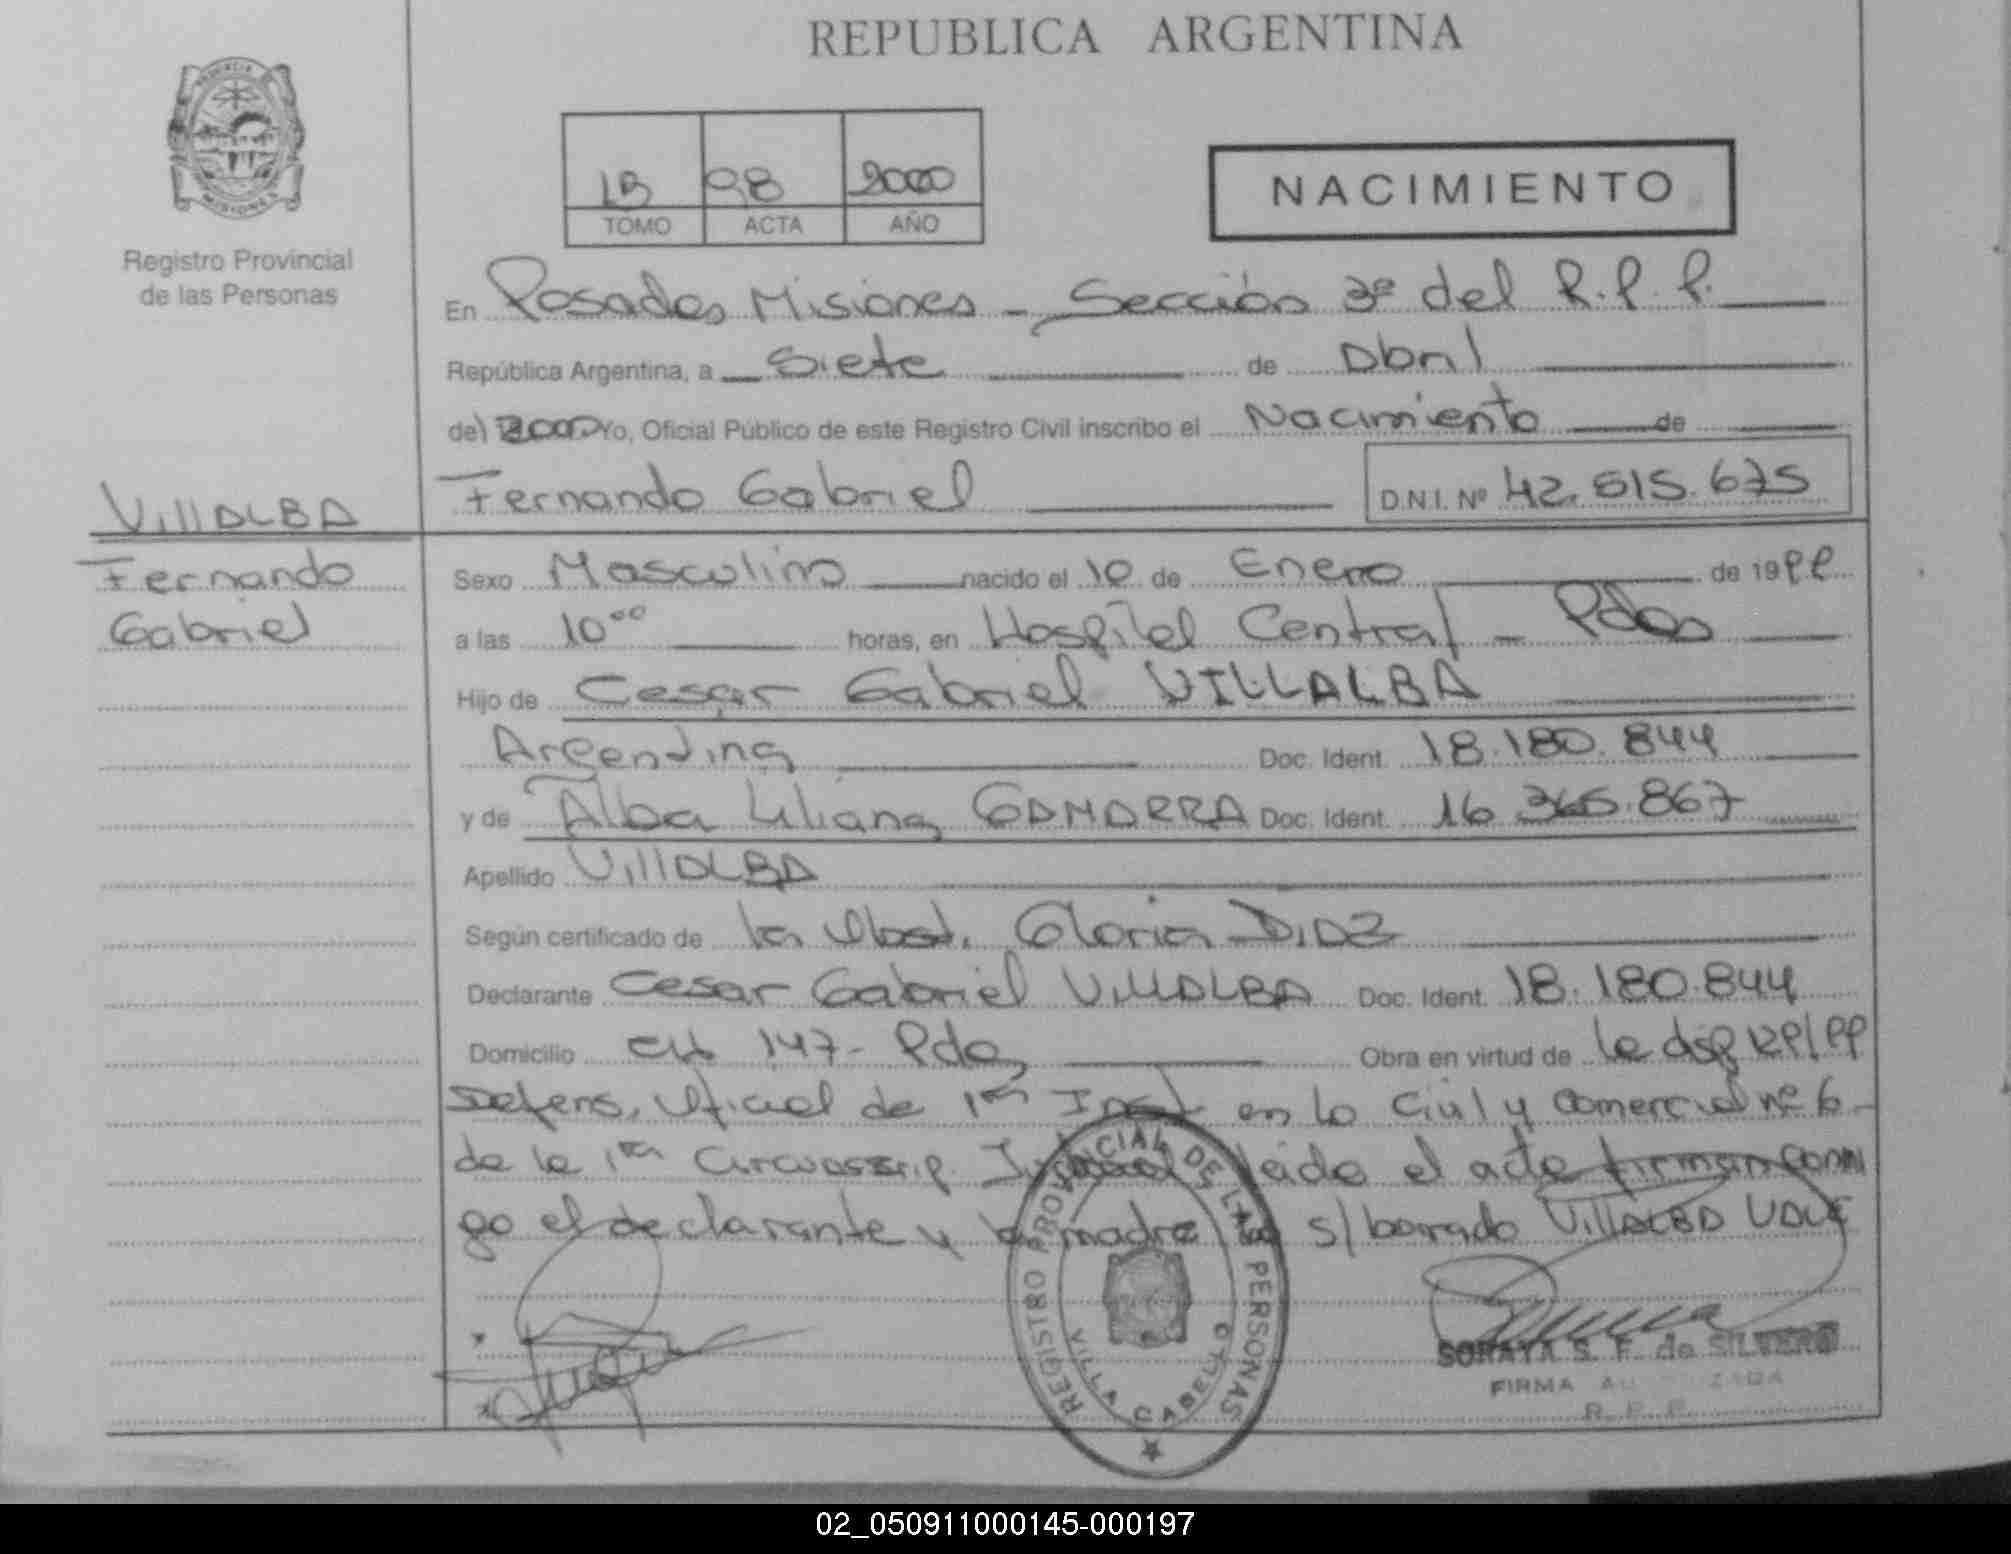 REPUBLICA ARGENTINA
PROVINCIA
MISIONES
Registro Provincial
de las Personas
1B 98 2000
TOMO ACTA AÑO
NACIMIENTO
En Posadas Misiones - Sección 3º del R.P.P.
República Argentina, a Siete de Abril
del 2000 Yo, Oficial Público de este Registro Civil inscribo el Nacimiento de
Fernando Gabriel D.N.I. Nº 42.515.675
VillALBA
Fernando
Gabriel
Sexo Masculino nacido el 10 de Enero de 1999
a las 10⁰⁰ horas, en Hospital Central - Pdas
Hijo de Cesar Gabriel VILLALBA
Argentina Doc. Ident. 18.180.844
y de Alba Liliana GAMARRA Doc. Ident. 16.365.867
Apellido VillALBA
Según certificado de la Obst. Gloria DIAZ
Declarante Cesar Gabriel VillALBA Doc. Ident. 18.180.844
Domicilio 147 - Pdas Obra en virtud de la disp
Defens. Oficial de 1ra Inst en lo Civil y Comercial nº 6
de la 1ra Circunscrip. Judicial leida el acta firman conmi
go el declarante y la madre s/borrado VillALBA VALE
REGISTRO PROVINCIAL DE LAS PERSONAS
VILLA CABELLO
SORAYA S. F. de SILVERO
FIRMA
R. P. P.
02_050911000145-000197